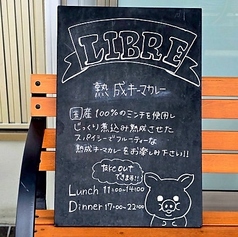 LIBRE
熟成キーマカレー
国産100%のミンチを使用し
じっくり煮込み熟成させた
スパイシーでフルーティーな
熟成キーマカレーをお楽しみ下さい!!
TAKE OUT
できます!!
Lunch 11:00-14:00
Dinner 17:00-22:00